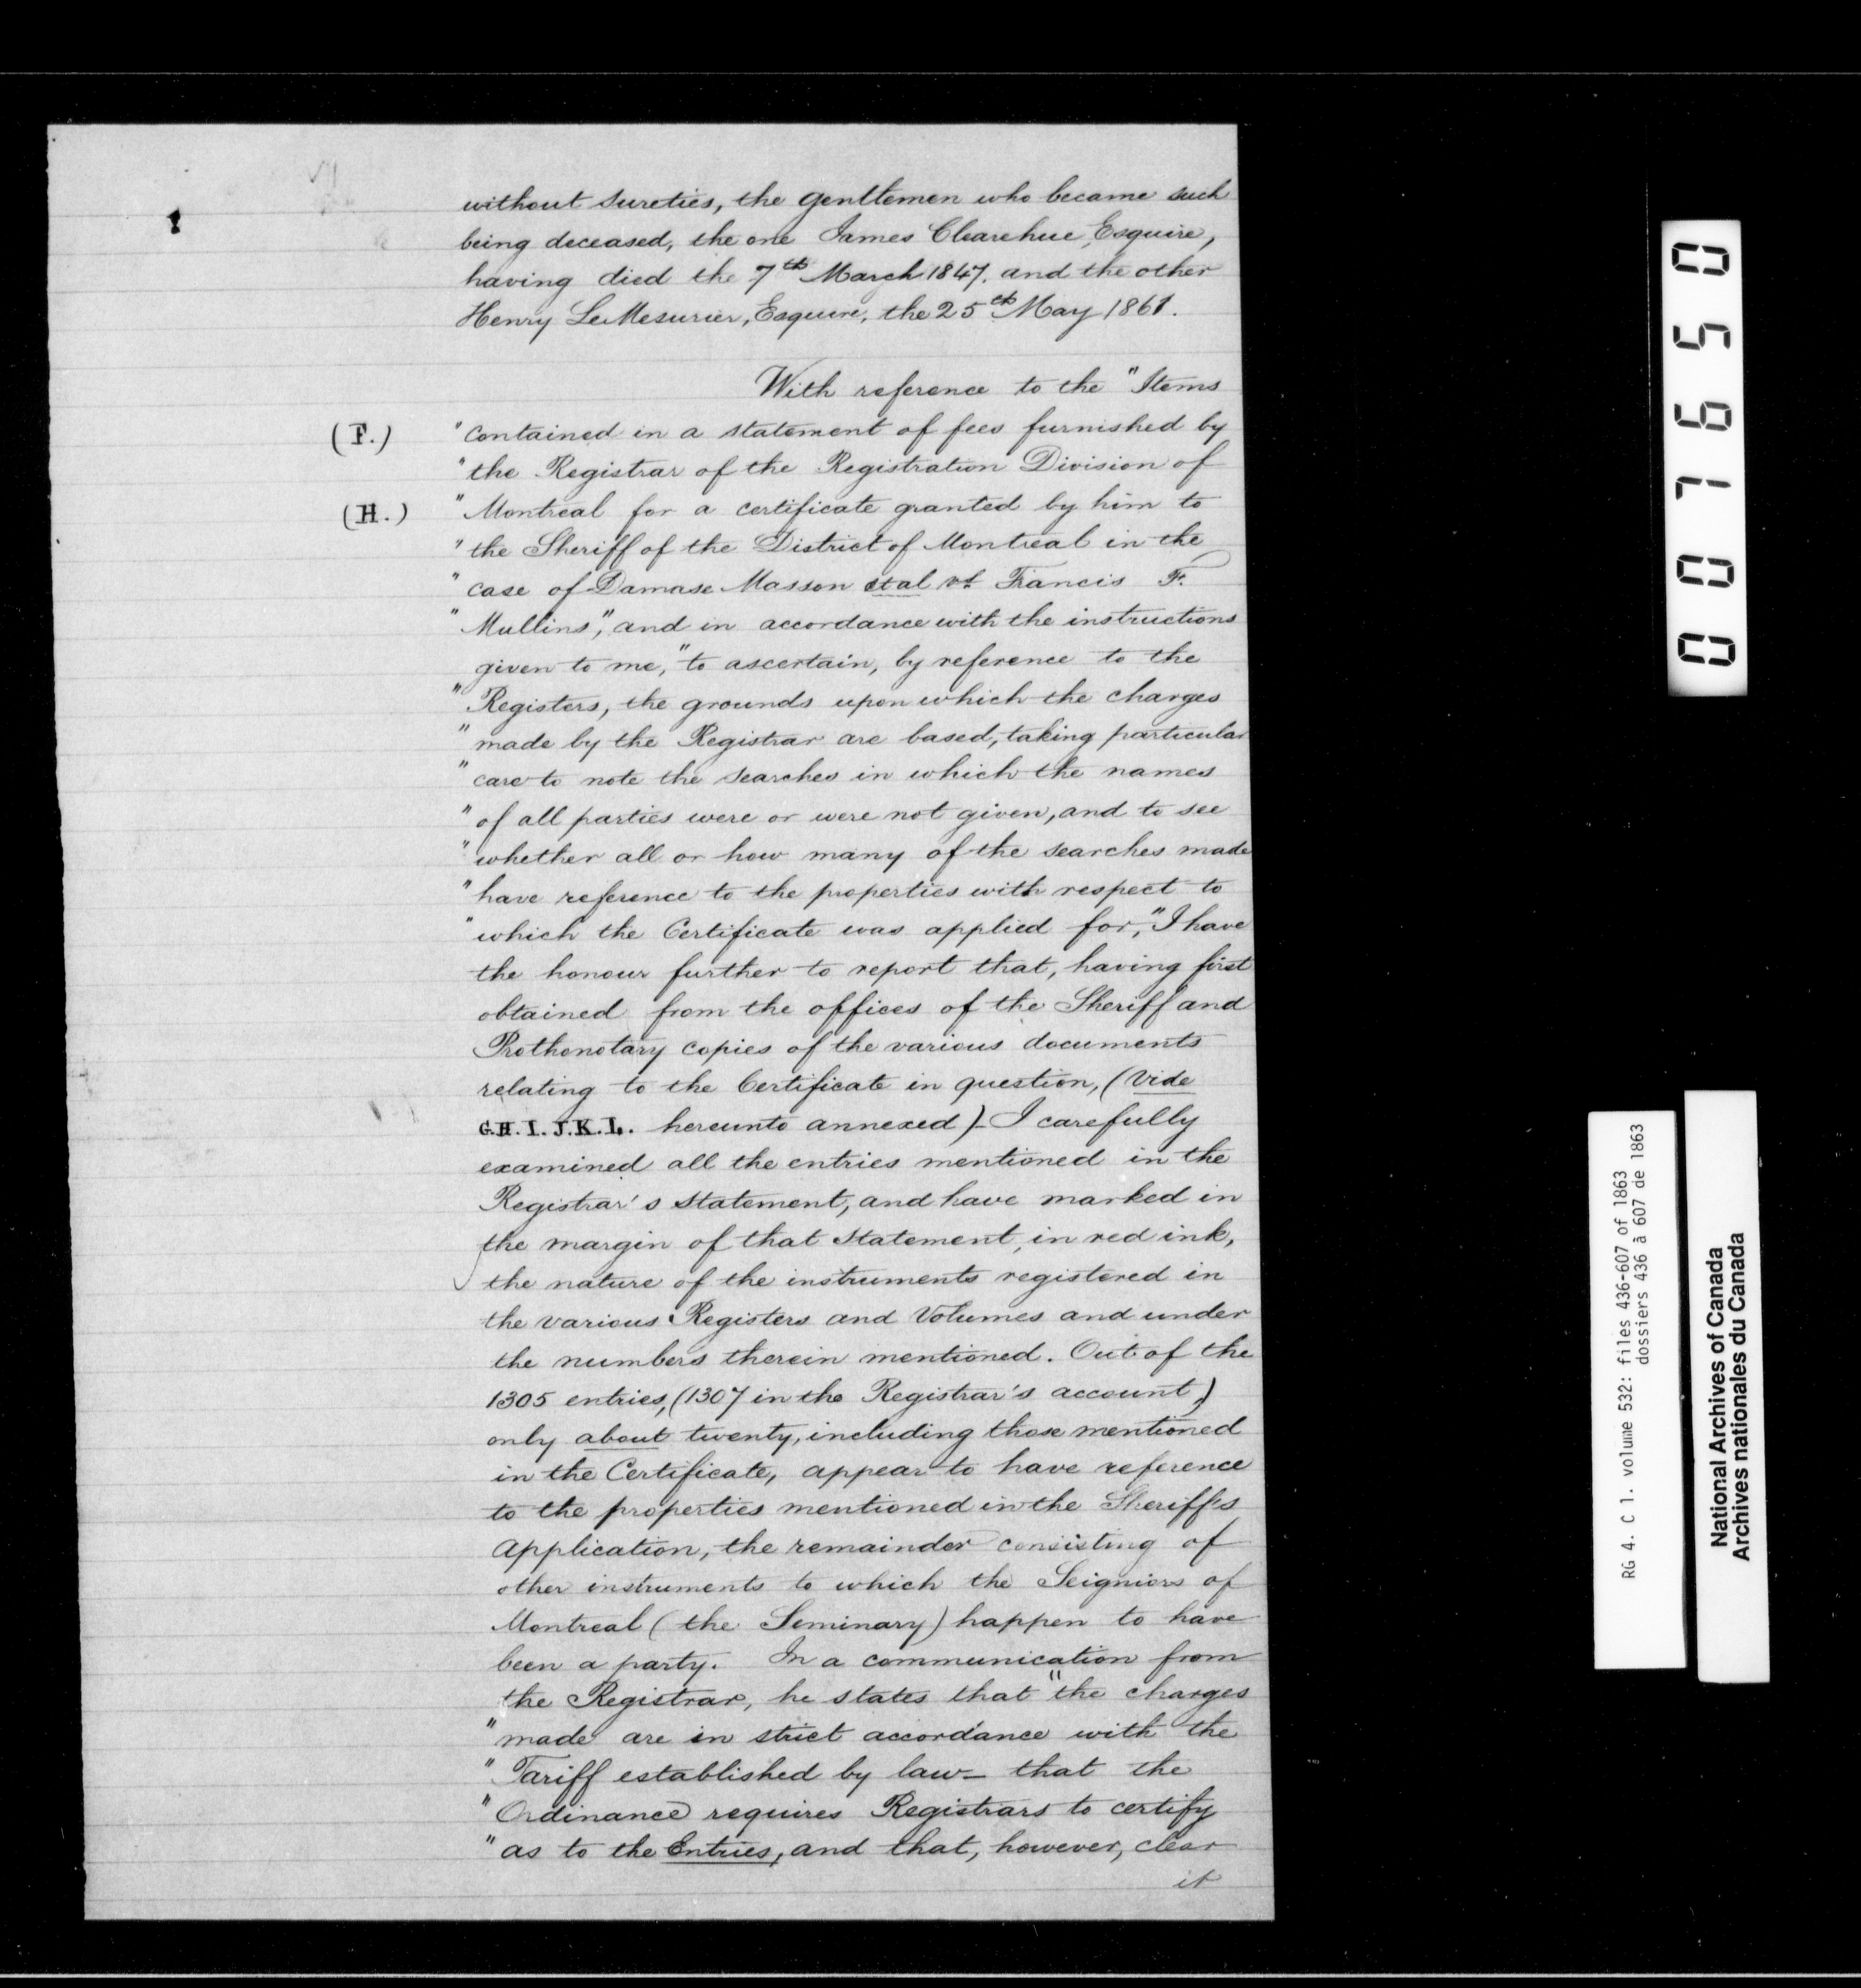 without sureties, the gentlemen who became such
being deceased, the one James Clearehue, Esquire,
having died the 7th March 1847. and the other
Henry LeMesurier, Esquire, the 25th May 1861.
With reference to the "Items
(F.) "contained in a statement of fees furnished by
"the Registrar of the Registration Division of
(H.) "Montreal for a certificate granted by him to
"the Sheriff of the District of Montreal in the
"case of Damase Masson et al vs. Francis F.
"Mullins", and in accordance with the instructions
given to me, "to ascertain, by reference to the
"Registers, the grounds upon which the charges
"made by the Registrar are based, taking particular
"care to note the searches in which the names
"of all parties were or were not given, and to see
"whether all or how many of the searches made
"have reference to the properties with respect to
"which the Certificate was applied for," I have
the honour further to report that, having first
obtained from the offices of the Sheriff and
Prothonotary copies of the various documents
relating to the Certificate in question, (Vide
G.H.I.J.K.L. hereunto annexed) - I carefully
examined all the entries mentioned in the
Registrar's statement, and have marked in
the margin of that statement, in red ink,
the nature of the instruments registered in
the various Registers and Volumes and under
the numbers therein mentioned. Out of the
1305 entries, (1307 in the Registrar's account)
only about twenty, including those mentioned
in the Certificate, appear to have reference
to the properties mentioned in the Sheriff's
Application, the remainder consisting of
other instruments to which the Seigniors of
Montreal (the Seminary) happen to have
been a party. In a communication from
the Registrar, he states that "the charges
"made are in strict accordance with the
"Tariff established by law - that the
"Ordinance requires Registrars to certify
"as to the Entries, and that, however, clear
it
007650
RG 4. C 1. volume 532: files 436-607 of 1863
dossiers 436 à 607 de 1863
National Archives of Canada
Archives nationales du Canada